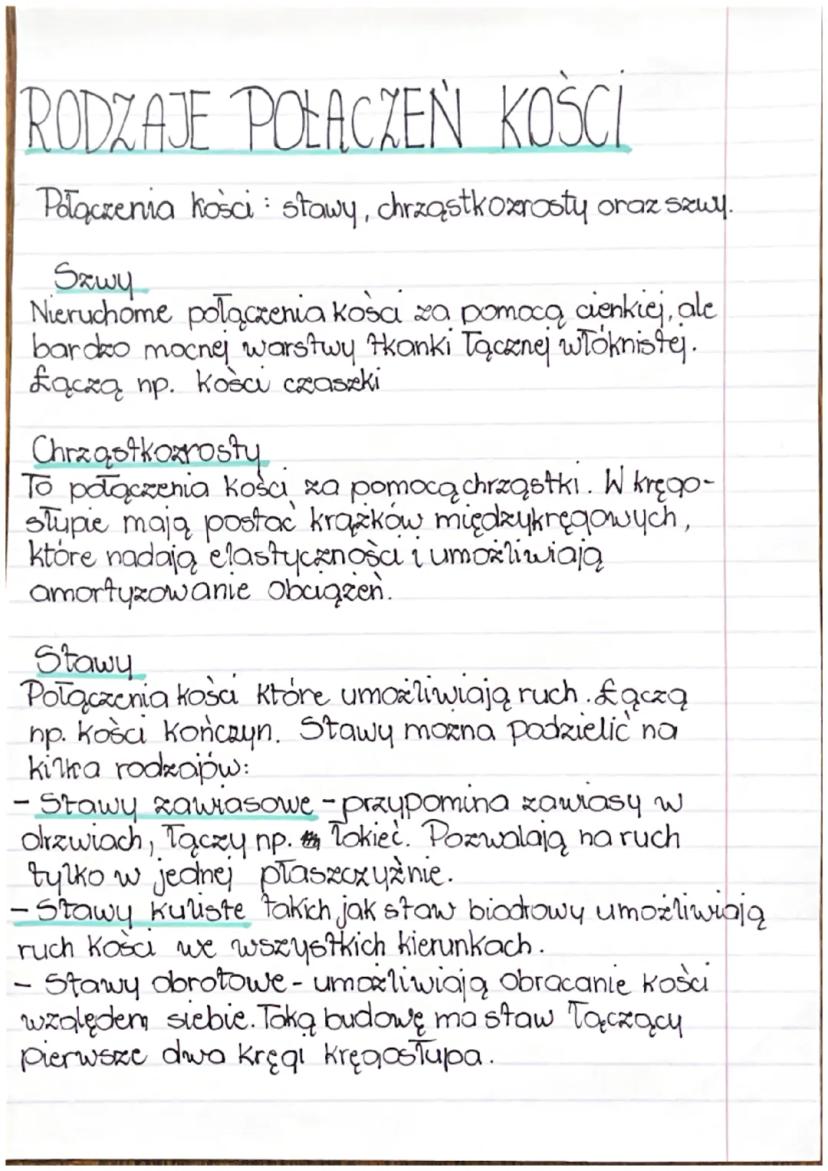 RODZAJE POŁĄCZEŃ KOŚCI
Połączenia kości : stawy, chrząstkozrosty oraz szwy.
Szwy
Nieruchome połączenia kości za pomocą cienkiej, ale
bardzo mocnej warstwy tkanki łącznej włóknistej.
Łączą np. kości czaszki
Chrząstkozrosty
To połączenia kości za pomocą chrząstki. W kręgo-
słupie mają postać krążków międzykręgowych,
które nadają elastyczności i umożliwiają
amortyzowanie obciążeń.
Stawy
Połączenia kości które umożliwiają ruch. Łączą
np. kości kończyn. Stawy można podzielić na
kilka rodzajów:
- Stawy zawiasowe - przypomina zawiasy w
drzwiach, łączy np. łokieć. Pozwalają na ruch
tylko w jednej płaszczyźnie.
- Stawy kuliste takich jak staw biodrowy umożliwiają
ruch kości we wszystkich kierunkach.
- Stawy obrotowe - umożliwiają obracanie kości
względem siebie. Taką budowę ma staw łączący
pierwsze dwa kręgi kręgosłupa.